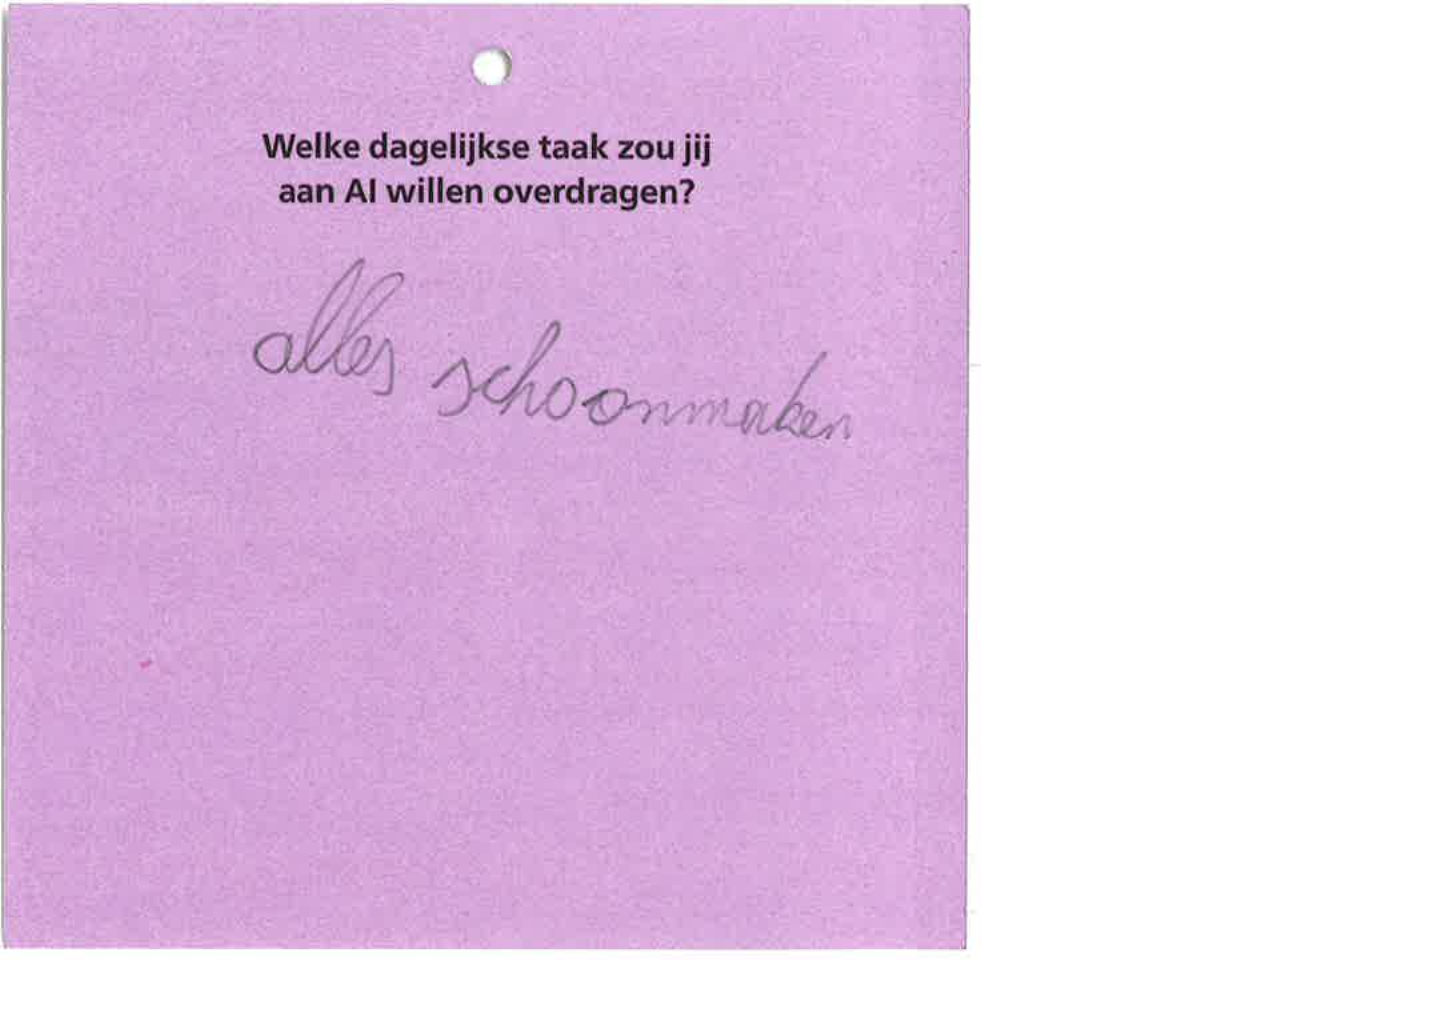 Welke dagelijkse taak zou jij
aan AI willen overdragen?
alles schoonmaken